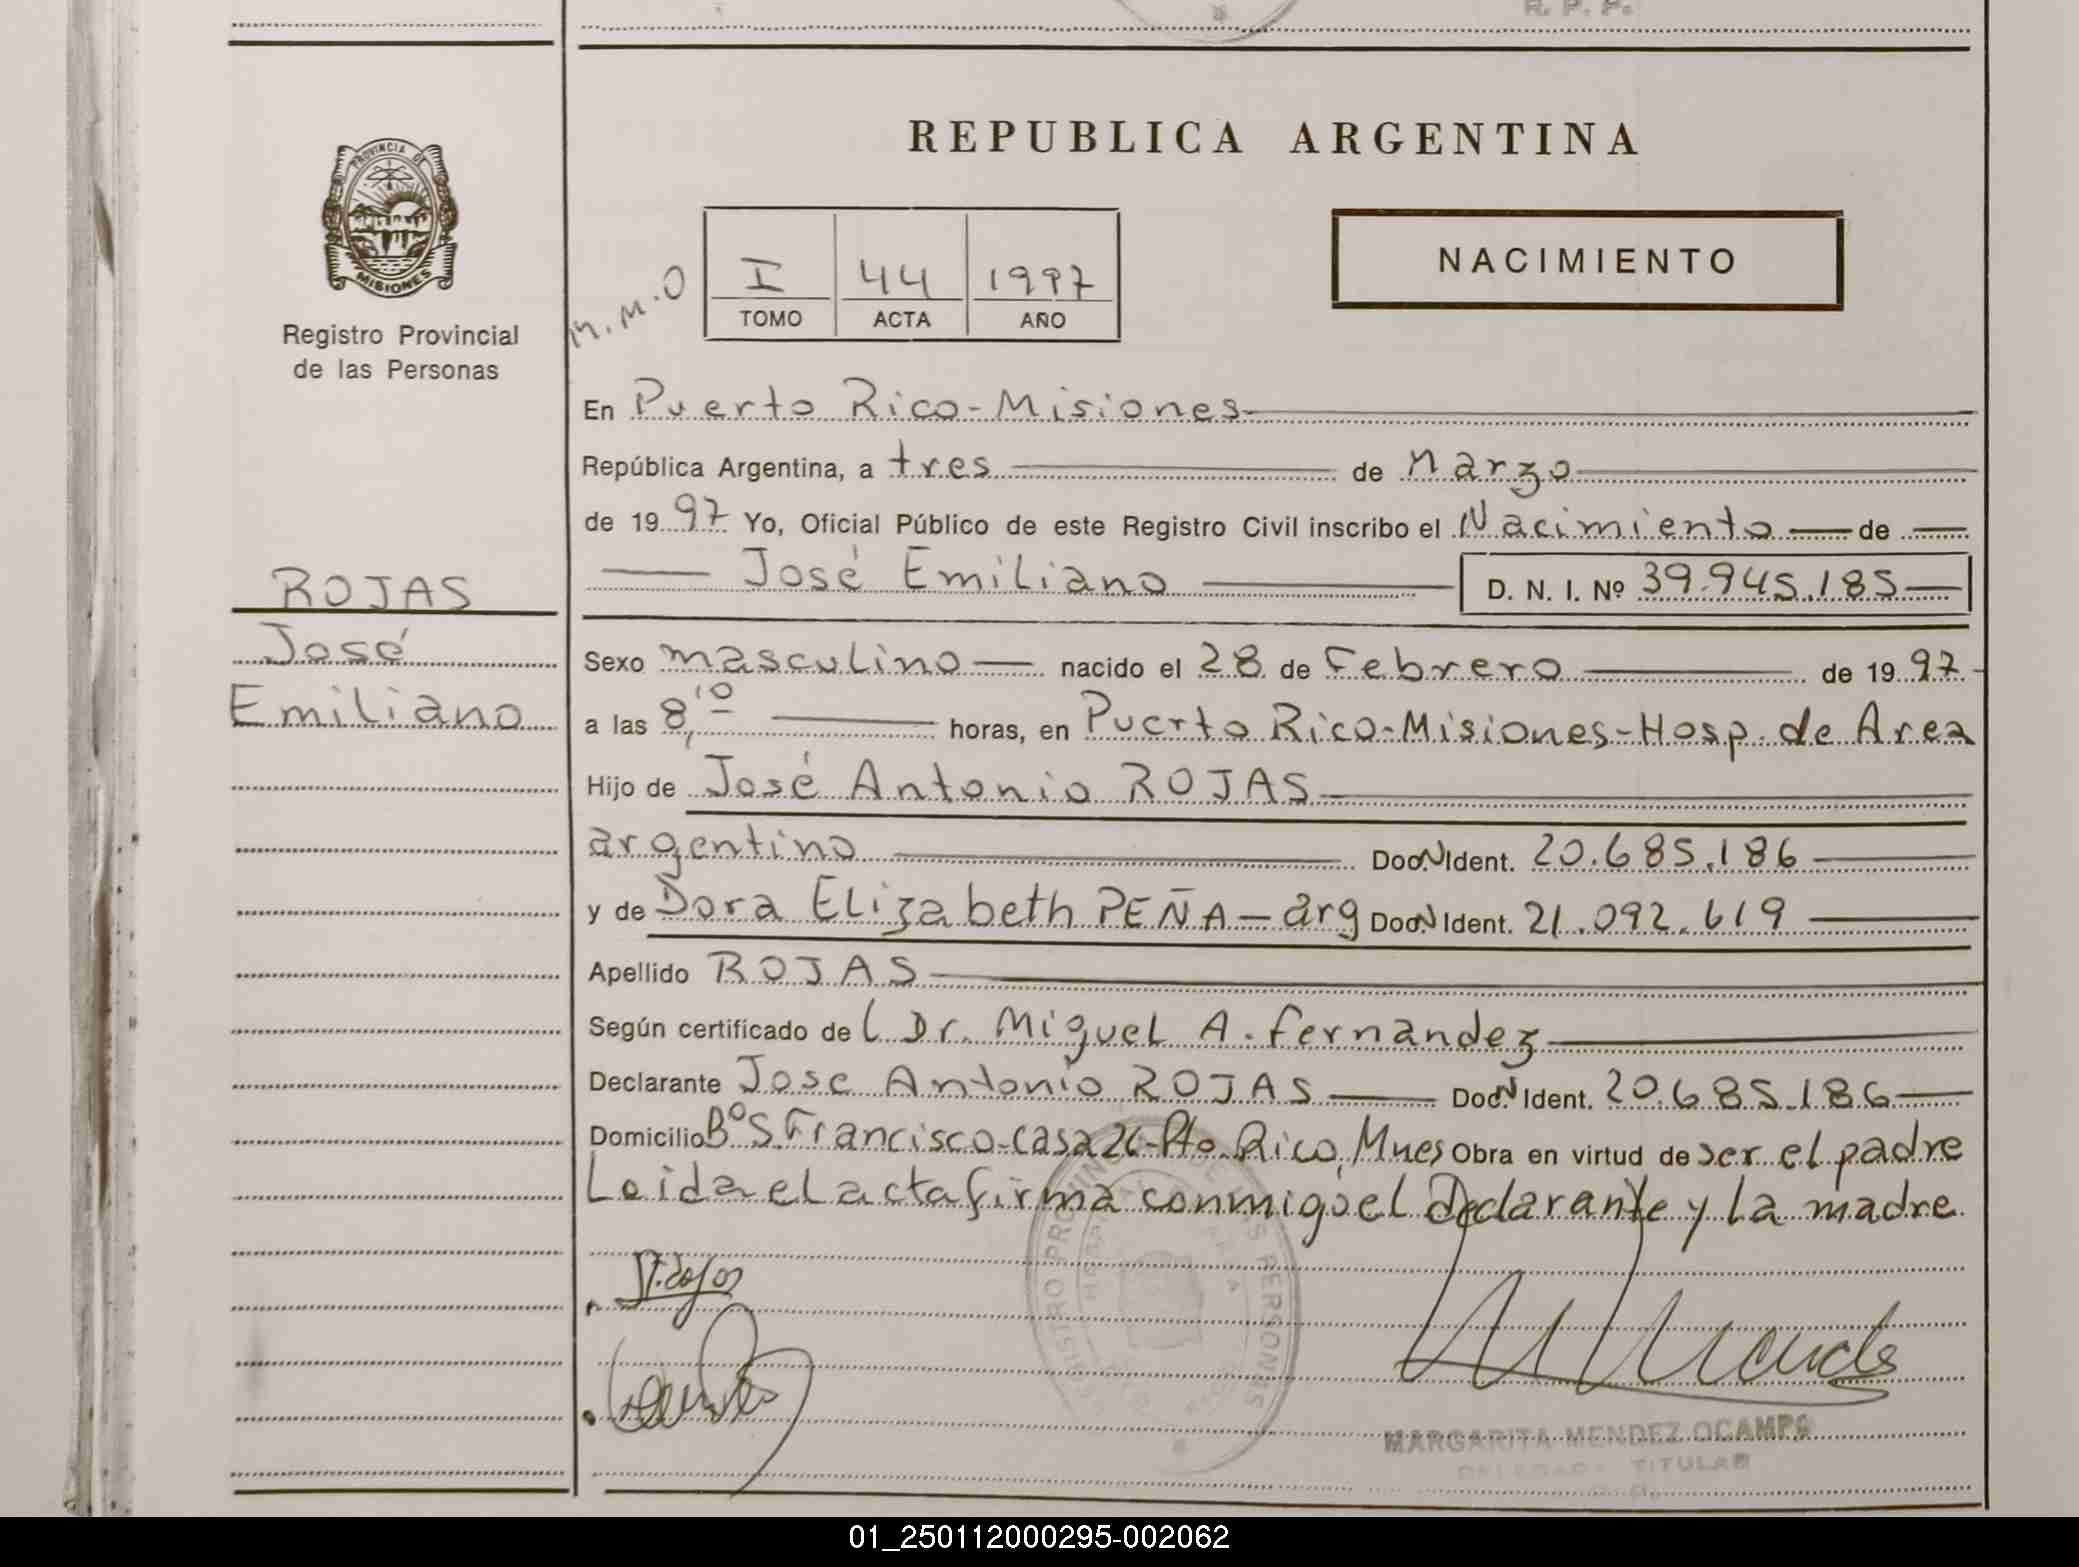 R. P. P.
REPUBLICA ARGENTINA
PROVINCIA DE
MISIONES
Registro Provincial
de las Personas
M.M.O
I 44 1997
TOMO ACTA AÑO
NACIMIENTO
En Puerto Rico-Misiones
República Argentina, a tres de Marzo
de 1997 Yo, Oficial Público de este Registro Civil inscribo el Nacimiento de
José Emiliano D. N. I. Nº 39.945.185
ROJAS
José
Emiliano
Sexo masculino nacido el 28 de Febrero de 1997
a las 8,10 horas, en Puerto Rico-Misiones-Hosp. de Area
Hijo de José Antonio ROJAS
argentino Doc. N Ident. 20.685.186
y de Dora Elizabeth PEÑA-arg Doc. N Ident. 21.092.619
Apellido ROJAS
Según certificado del Dr. Miguel A. Fernandez
Declarante Jose Antonio ROJAS Doc. N Ident. 20.685.186
Domicilio Bº S. Francisco-Casa 26-Pto. Rico, Mnes Obra en virtud de ser el padre
Leida el acta firma conmigo el Declarante y La madre
REGISTRO PROVINCIAL DE LAS PERSONAS
MARGARITA MENDEZ OCAMPO
DELEGADA TITULAR
01_250112000295-002062